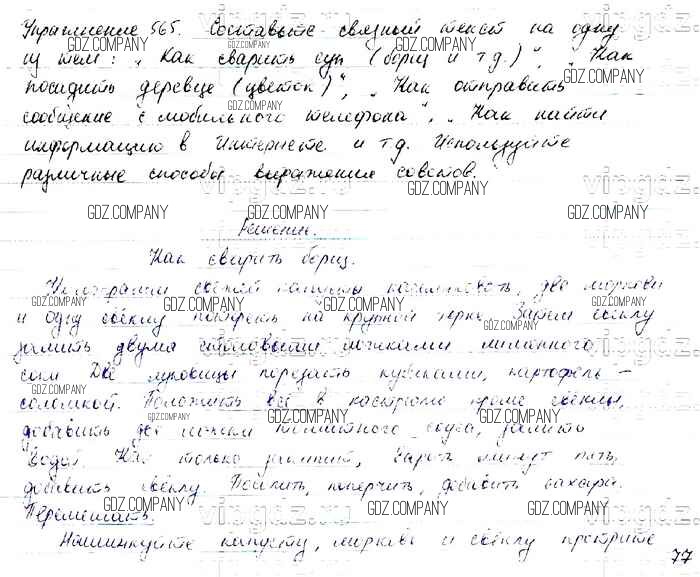 Упражнение 565. Составьте связный текст на одну
из тем: „Как сварить суп (борщ и т.д.)“, „Как
посадить деревце (цветок)“, „Как отправить
сообщение с мобильного телефона“, „Как найти
информацию в Интернете и т.д. Используйте
различные способы выражения советов.
Решение.
Как сварить борщ.
свежей капусты нашинковать, две моркови
и одну свёклу потереть на крупной терке. Затем свёклу
залить двумя столовыми ложками лимонного
сока. Две луковицы порезать кубиками, картофель –
соломкой. Положить всё в кастрюлю кроме свёклы,
добавить две ложки томатного соуса, залить
водой. Как только закипит, варить минут пять,
добавить свёклу. Посолить, поперчить, добавить сахара.
Перемешать.
Нашинкуйте капусту, морковь и свёклу протрите
77